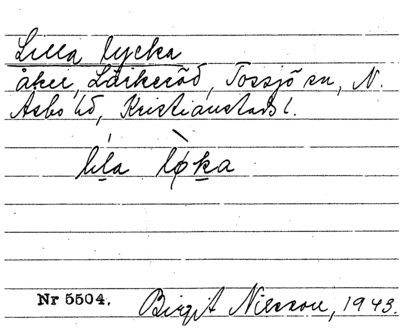 Lilla lycka
åker, Lärkeröd, Tossjö sn, N.
Asbo hd, Kristianstads l.
lila løka
Nr 5504. Birgit Nilsson, 1943.